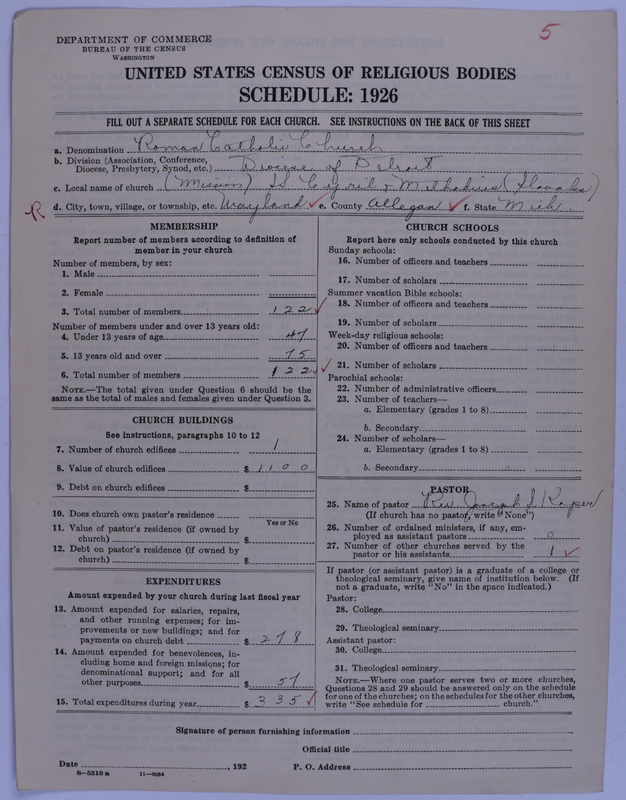 5
DEPARTMENT OF COMMERCE
BUREAU OF THE CENSUS
WASHINGTON
UNITED STATES CENSUS OF RELIGIOUS BODIES
SCHEDULE: 1926
FILL OUT A SEPARATE SCHEDULE FOR EACH CHURCH. SEE INSTRUCTIONS ON THE BACK OF THIS SHEET
a. Denomination Roman Catholic Church
b. Division (Association, Conference, Diocese, Presbytery, Synod, etc.) Diocese of Detroit
c. Local name of church (Mission) SS Cyril & Methodius (Slovaks)
R d. City, town, village, or township, etc. Wayland e. County Allegan f. State Mich
MEMBERSHIP
Report number of members according to definition of
member in your church
Number of members, by sex:
1. Male
2. Female
3. Total number of members 122
Number of members under and over 13 years old:
4. Under 13 years of age 47
5. 13 years old and over 75
6. Total number of members 122
NOTE.—The total given under Question 6 should be
same as the total of males and females given under Question 3.
CHURCH BUILDINGS
See instructions, paragraphs 10 to 12
7. Number of church edifices 1
8. Value of church edifices $ 1100
9. Debt on church edifices $
10. Does church own pastor's residence
Yes or No
11. Value of pastor's residence (if owned by
church) $
12. Debt on pastor's residence (if owned by
church) $
EXPENDITURES
Amount expended by your church during last fiscal year
13. Amount expended for salaries, repairs,
and other running expenses; for im-
provements or new buildings; and for
payments on church debt $ 278
14. Amount expended for benevolences, in-
cluding home and foreign missions; for
denominational support; and for all
other purposes $ 57
15. Total expenditures during year $ 335
CHURCH SCHOOLS
Report here only schools conducted by this church
Sunday schools:
16. Number of officers and teachers
17. Number of scholars
Summer vacation Bible schools:
18. Number of officers and teachers
19. Number of scholars
Week-day religious schools:
20. Number of officers and teachers
21. Number of scholars
Parochial schools:
22. Number of administrative officers
23. Number of teachers—
a. Elementary (grades 1 to 8)
b. Secondary
24. Number of scholars—
a. Elementary (grades 1 to 8)
b. Secondary
PASTOR
25. Name of pastor Rev Joseph S
(If church has no pastor, write "None")
26. Number of ordained ministers, if any, em-
ployed as assistant pastors 0
27. Number of other churches served by the
pastor or his assistants 1
If pastor (or assistant pastor) is a graduate of a college or
theological seminary, give name of institution below. (If
not a graduate, write "No" in the space indicated.)
Pastor:
28. College
29. Theological seminary
Assistant pastor:
30. College
31. Theological seminary
NOTE.—Where one pastor serves two or more churches,
Questions 28 and 29 should be answered only on the schedule
for one of the churches; on the schedules for the other churches,
write "See schedule for church."
Signature of person furnishing information
Official title
Date , 192 P. O. Address
8—5518 a 11—9084